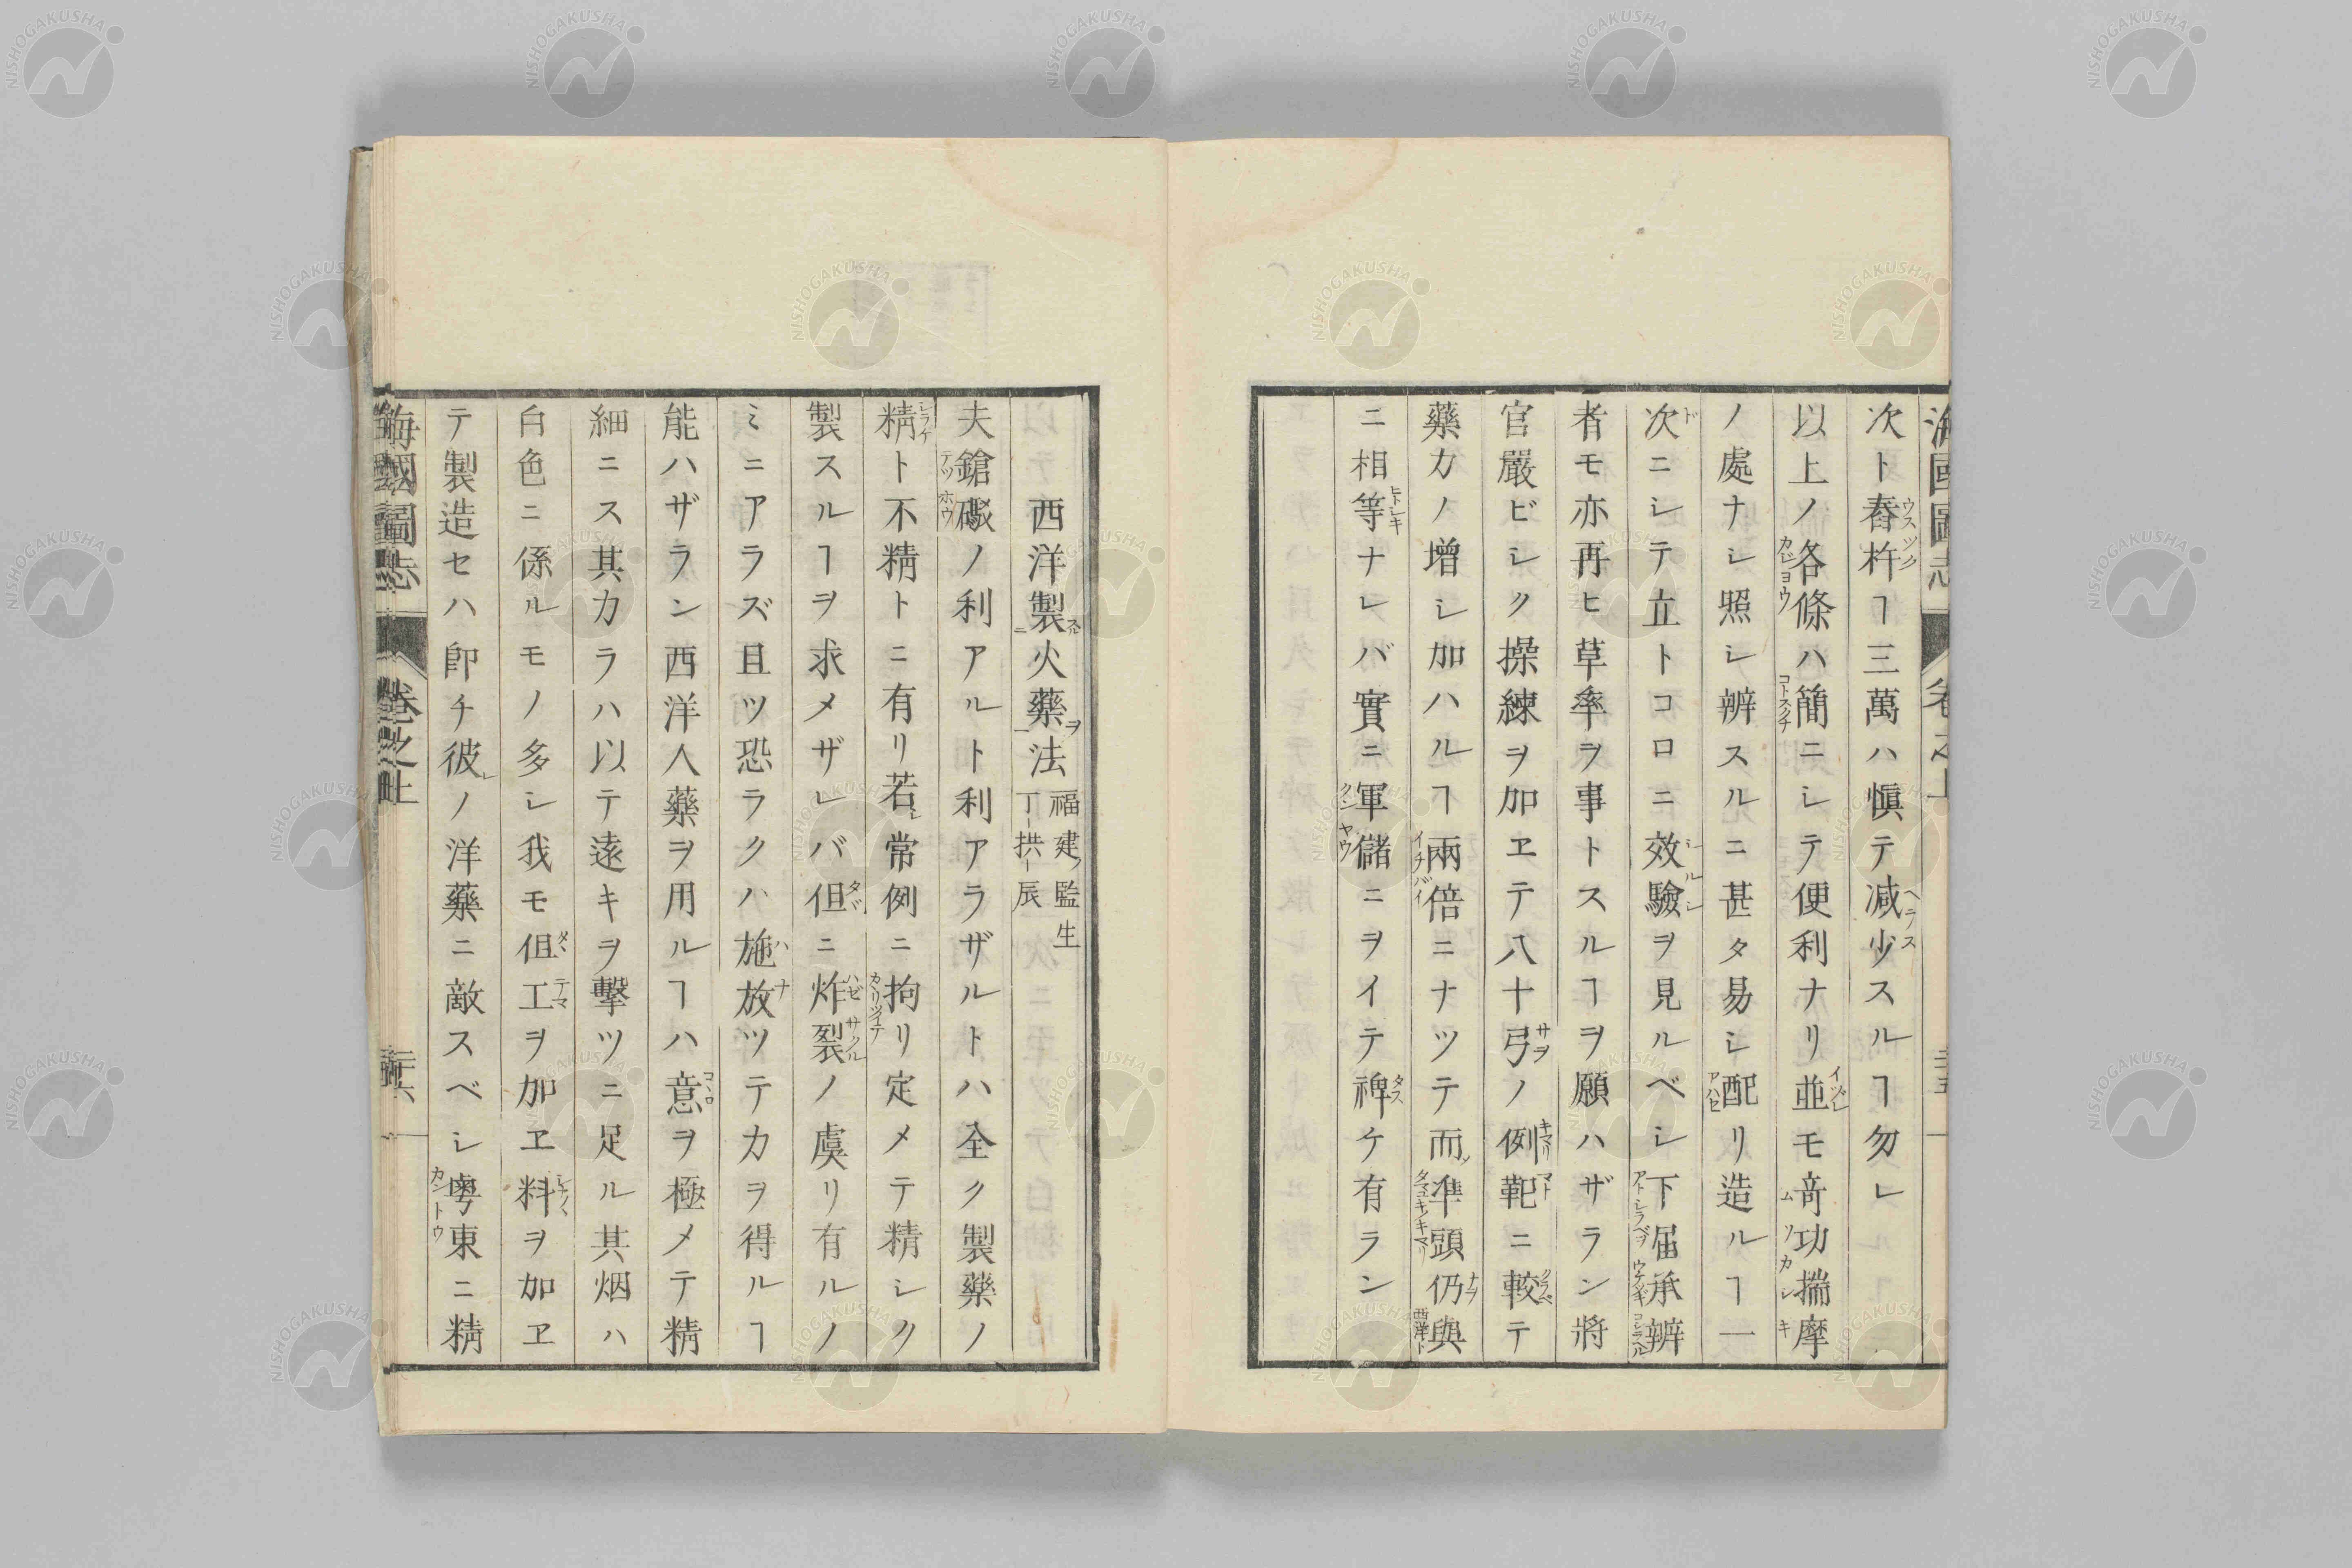 海國圖志
卷之上
三十五
次ト舂杵ヿ三萬ハ愼テ減少スルヿ勿レ
以上ノ各條ハ簡ニシテ便利ナリ並モ竒功揣摩
ノ處ナシ照シ辨スルニ甚タ易シ配リ造ルヿ一
次ニシテ立トコロニ效驗ヲ見ルベシ下届承辨
者モ亦再ヒ草率ヲ事トスルヿヲ願ハザラン將
官嚴ビシク操練ヲ加ヱテ八十弓ノ例靶ニ較テ
藥力ノ增シ加ハルヿ兩倍ニナツテ而準頭仍與
ニ相等ナレバ實ニ軍儲ニヲイテ裨ケ有ラン
西洋製火藥法
福建ノ監生
丁拱辰
夫鎗礮ノ利アルト利アラザルトハ全ク製藥ノ
精ト不精トニ有リ若シ常例ニ拘リ定メテ精シク
製スルヿヲ求メザレバ但ニ炸裂ノ虞リ有ルノ
ミニアラズ且ツ恐ラクハ施放ツテ力ヲ得ルヿ
能ハザラン西洋人藥ヲ用ルヿハ意ヲ極メテ精
細ニス其力ラハ以テ遠キヲ擊ツニ足ル其烟ハ
白色ニ係ルモノ多シ我モ但工ヲ加ヱ料ヲ加ヱ
テ製造セハ卽チ彼レノ洋藥ニ敵スベシ粵東ニ精
海國圖志
卷之上
三十六